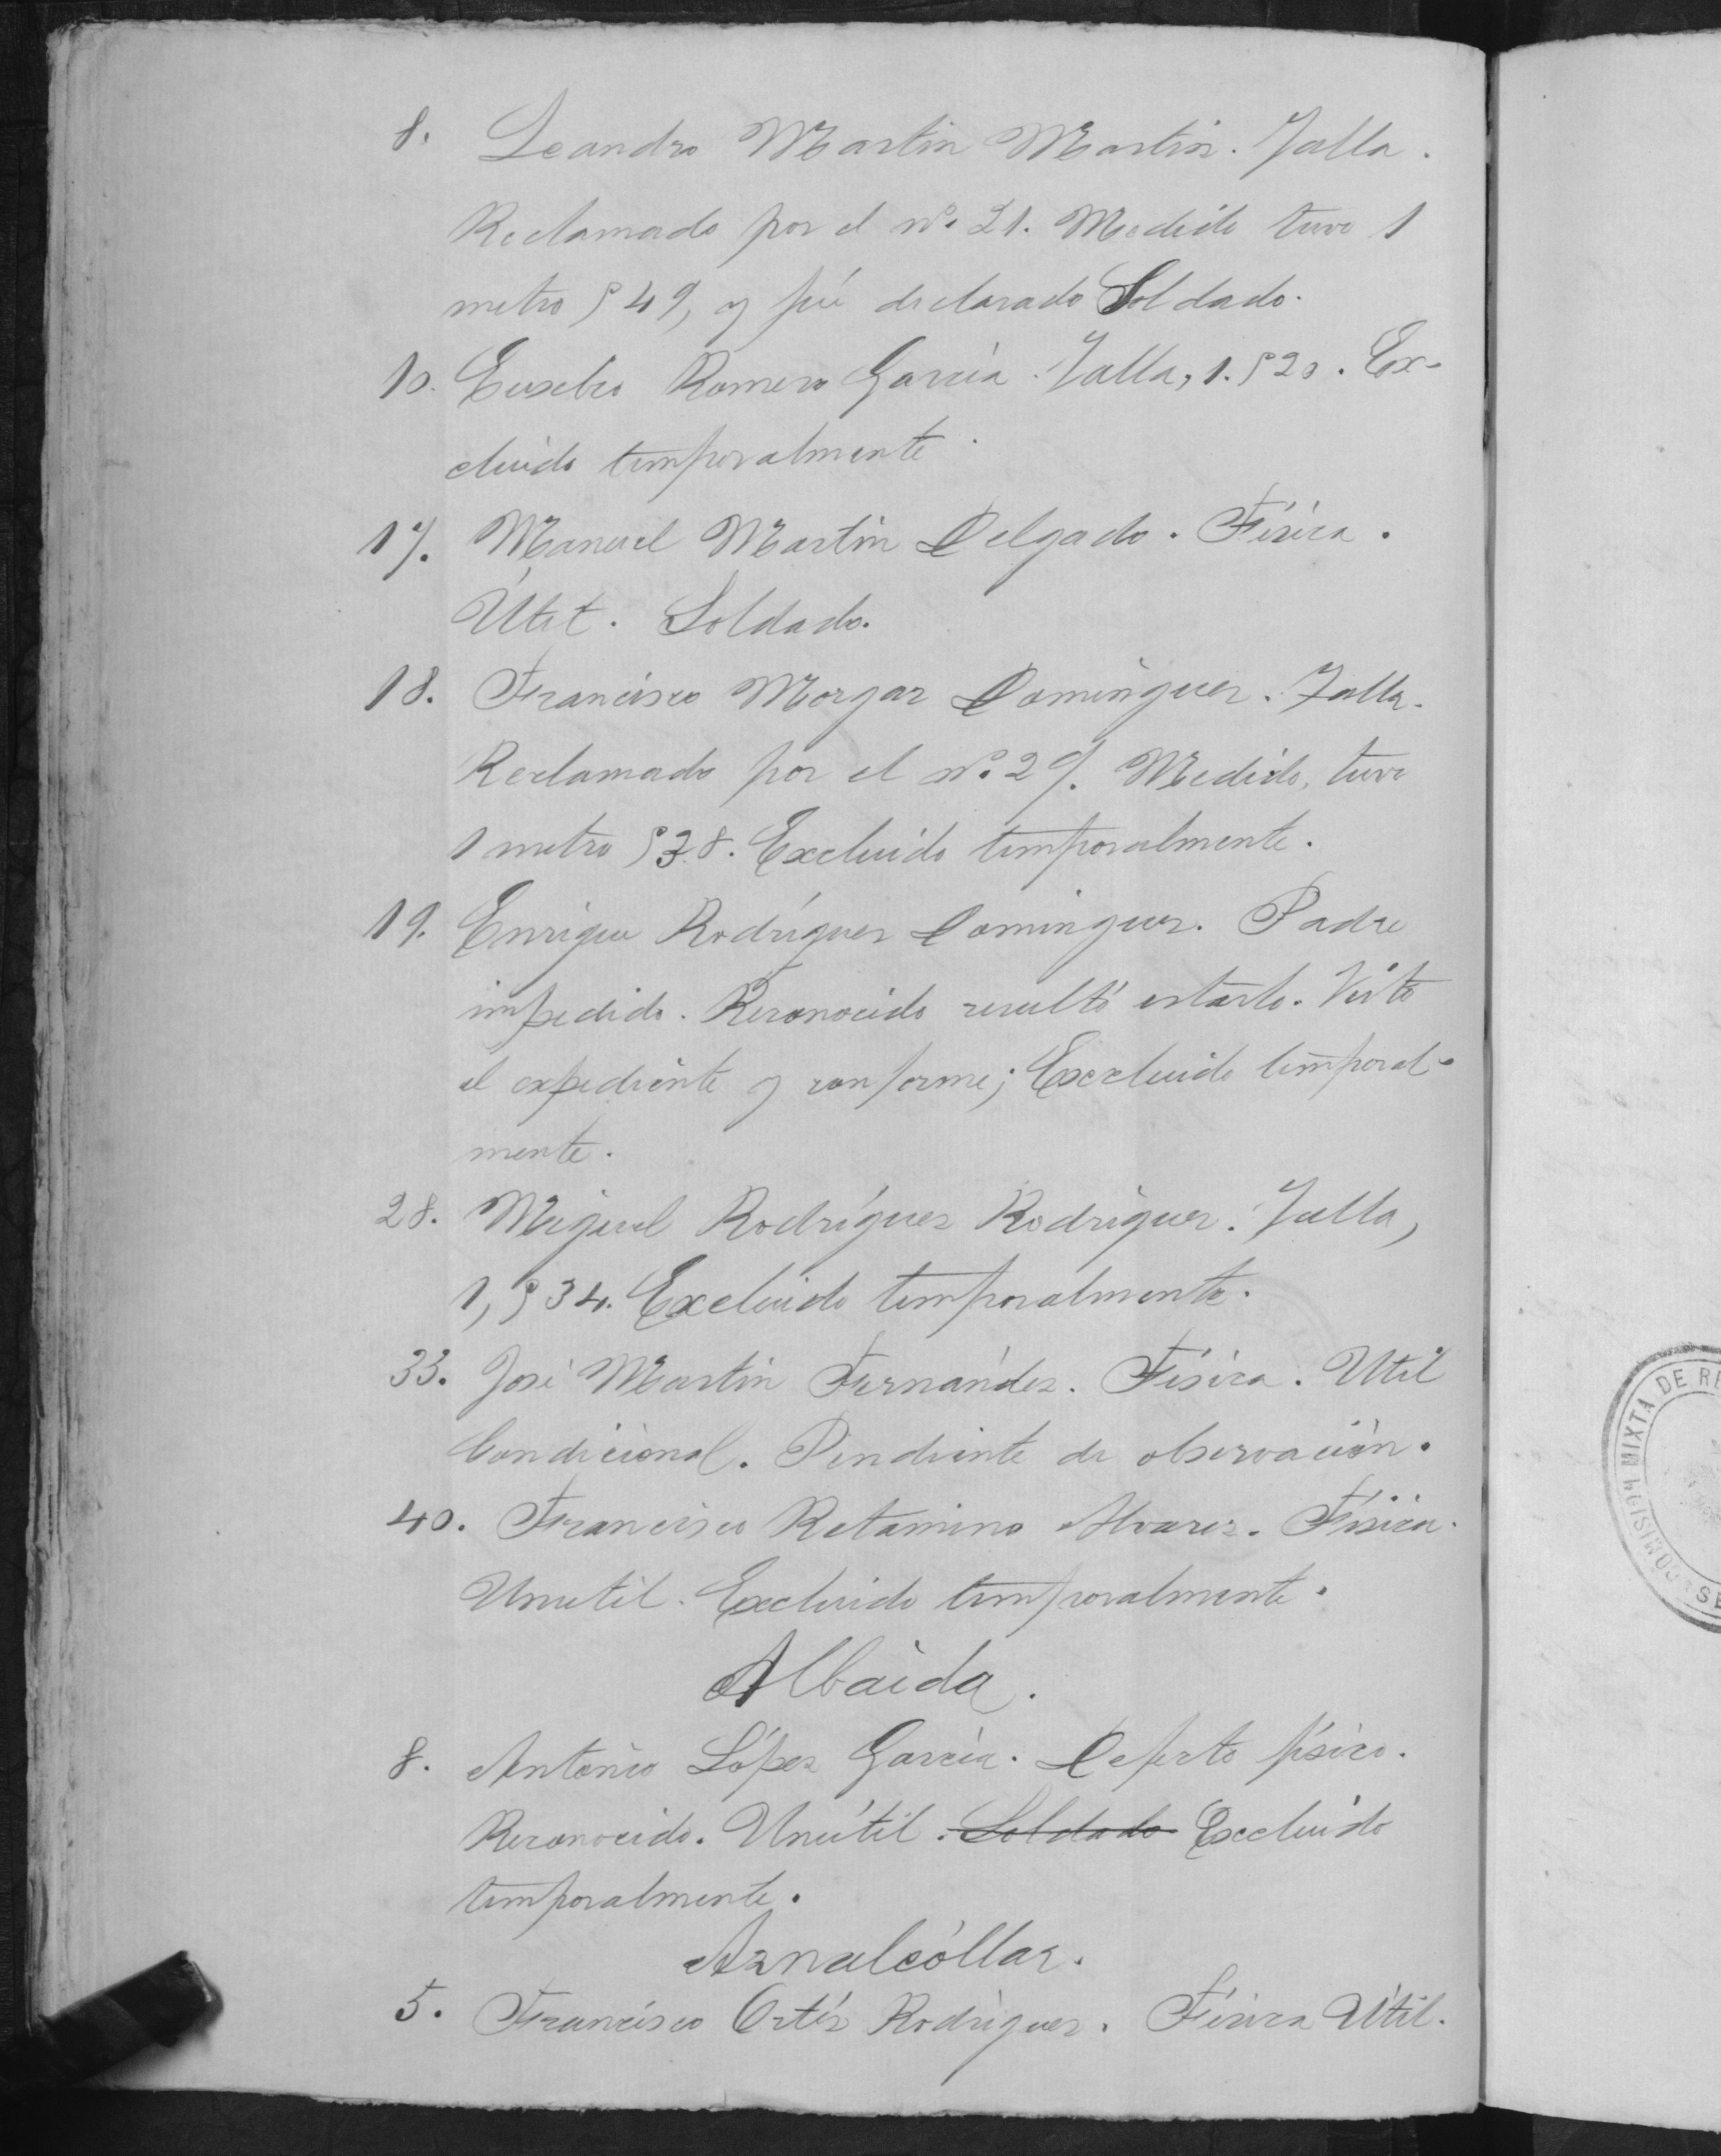 8. Leandro Martin Martin. Talla.
Reclamado por el nº 21. Medido tuvo 1
metro 549, y fué declarado Soldado.
10. Eusebio Romero García. Talla, 1.520. Ex-
cluido temporalmente.
17. Manuel Martin Delgado. Física.
Útil. Soldado.
18. Francisco Morgaz Domínguez. Talla.
Reclamado por el nº 29. Medido, tuvo
1 metro 538. Excluido temporalmente.
19. Enrique Rodríguez Dominguez. Padre
impedido. Reconocido resultó estarlo. Visto
el expediente y conforme; Excluido temporal-
mente.
28. Miguel Rodríguez Rodríguez. Talla,
1,534. Excluido temporalmente.
33. José Martin Fernández. Física. Util
Condicional. Pendiente de observación.
40. Francisco Retamino Alvarez. Física.
Ynutil. Excluido temporalmente.
Albaida.
8. Antonio López García. Defecto físico.
Reconocido. Ynútil. Soldado Excluído
temporalmente.
Aznalcóllar.
5. Francisco Ortíz Rodríguez. Física Util.
COMISIÓN MIXTA DE RE
SE